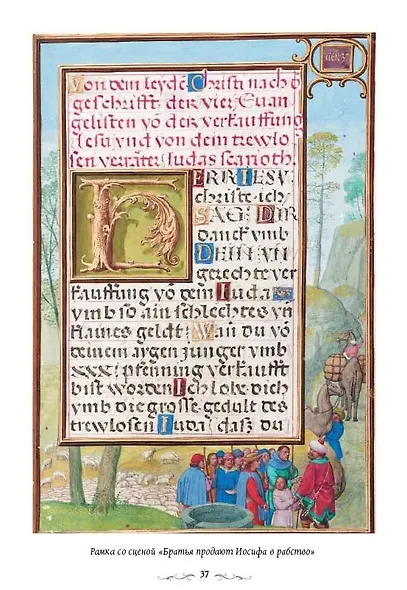 Gen 37
Von dem leydē Christi nach d
geschrifft der vier Euan
gelisten vō der verkauffung
Iesu vnd von dem trewlo
sen verräter Iudas scarioth.
HERR IESV
christe ich
SAG DIR
danck vmb
DEIN VN
gerechte ver
kauffung vō dem Iuda
vmb so ain schlechtes vn̄
klaines geldt Wan du vō
deinem argen junger vmb
XXX pfenning verkaufft
bist worden Ich lobe dich
vmb die grosse gedult des
trewlosen Iuda, dasz du
Рамка со сценой «Братья продают Иосифа в рабство»
37